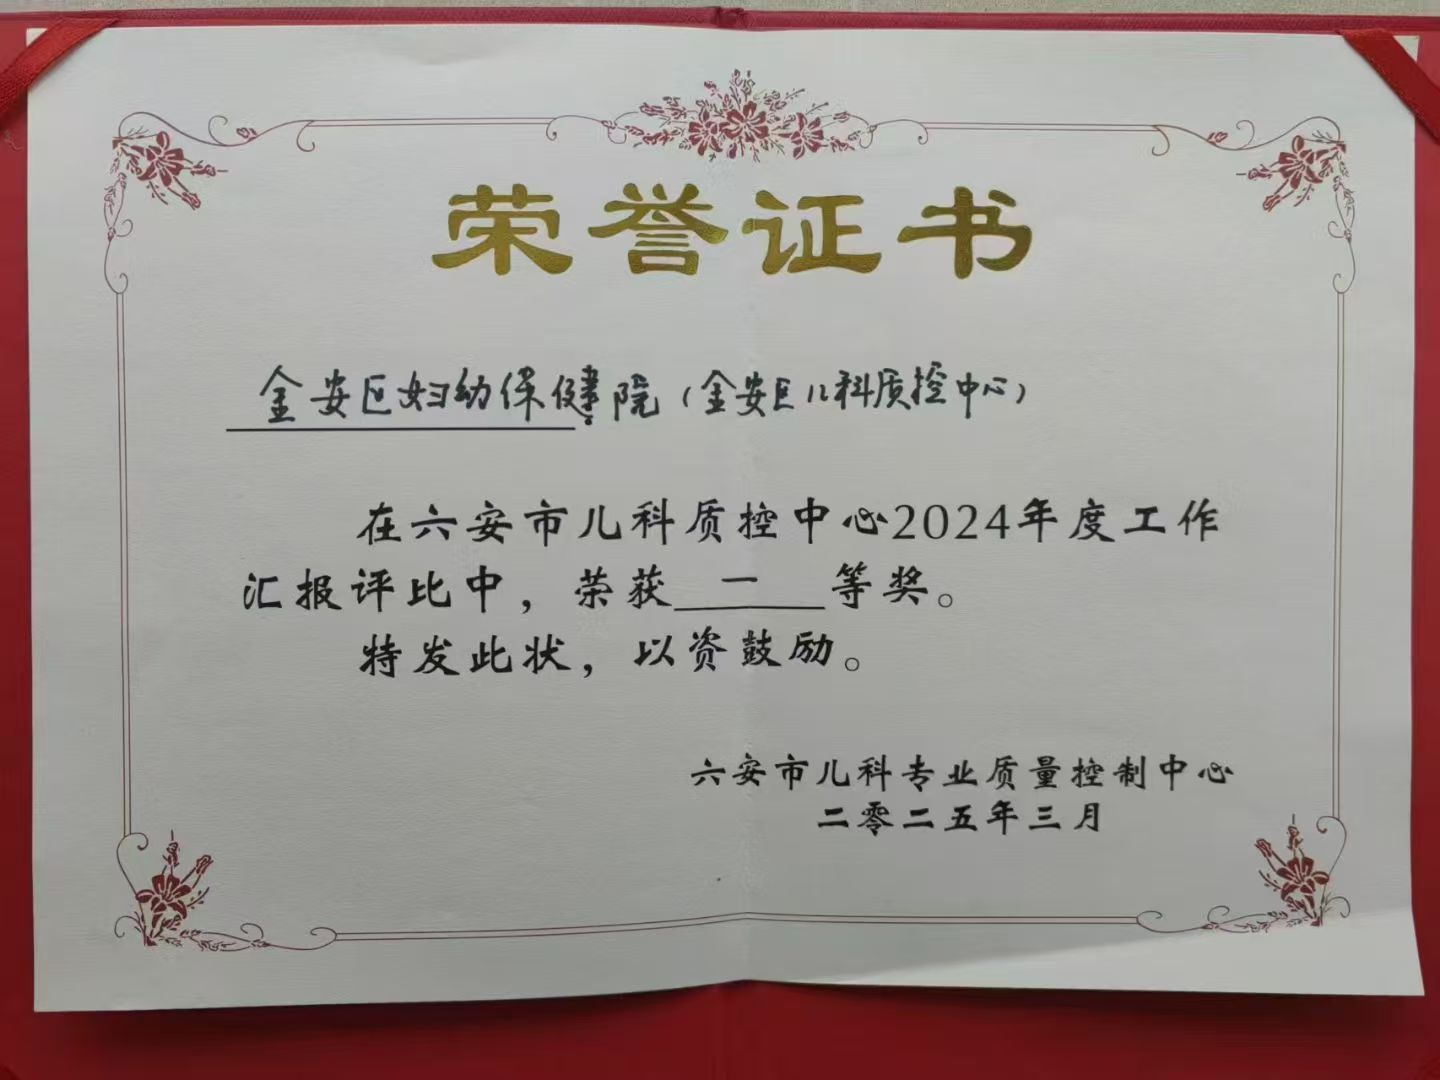 荣誉证书
金安区妇幼保健院（金安区儿科质控中心）
在六安市儿科质控中心2024年度工作
汇报评比中，荣获一等奖。
特发此状，以资鼓励。
六安市儿科专业质量控制中心
二零二五年三月